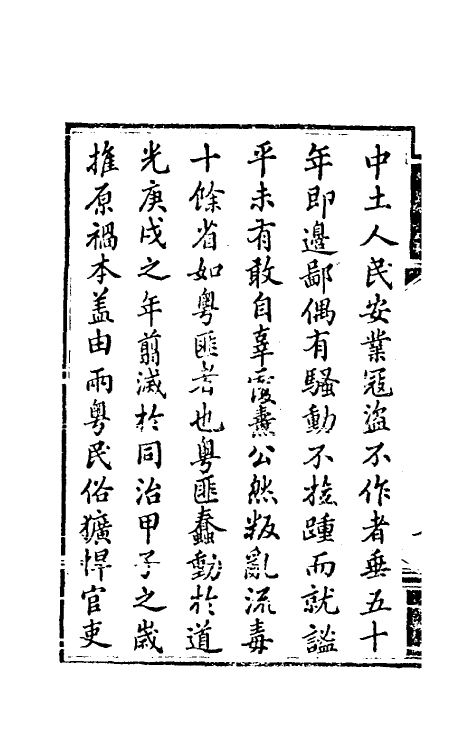 中土人民安業寇盜不作者垂五十
年即邊鄙偶有騷動不旋踵而就謐
平未有敢自辜覆燾公然叛亂流毒
十餘省如粵匪者也粵匪蠢動於道
光庚戌之年翦滅於同治甲子之歲
推原禍本蓋由兩粵民俗獷悍官吏